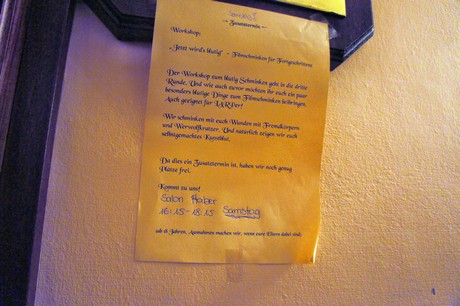 ~ Zusatztermin ~
Workshop:
„Jetzt wird's blutig" - Filmschminken für Fortgeschrittene
Der Workshop zum blutig Schminken geht in die dritte
Runde. Und wie auch zuvor möchten wir euch ein paar
besonders blutige Dinge zum Filmschminken beibringen.
Auch geeignet für LARPer!
Wir schminken mit euch Wunden mit Fremdkörpern
und Werwolfkratzer. Und natürlich zeigen wir euch
selbstgemachtes Kunstblut.
Da dies ein Zusatztermin ist, haben wir noch genug
Plätze frei.
Kommt zu uns!
Salon
16:15-18:15 Samstag
Jahren, Ausnahmen machen wir, wenn eure Eltern dabei sind.
4